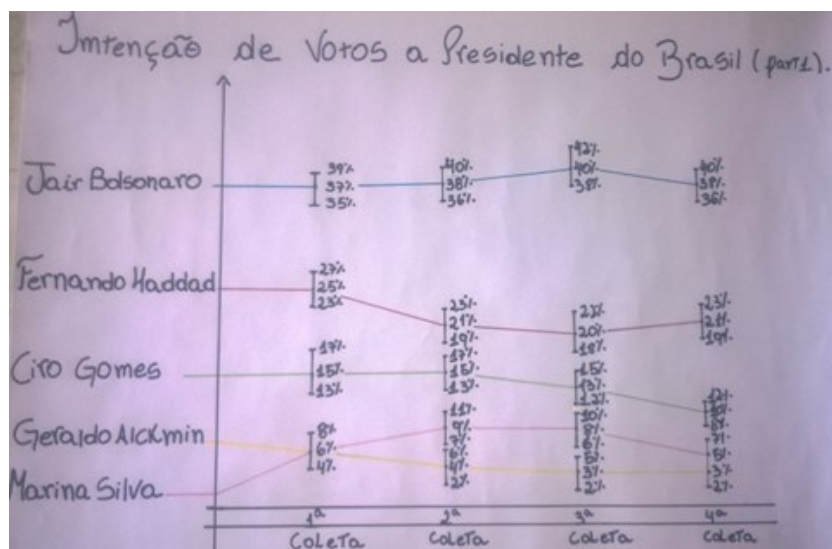 Imtenção de Votos a Presidente do Brasil (part1).
Jair Bolsonaro
39%
37%
35%
40%
38%
36%
42%
40%
38%
40%
38%
36%
Fernando Haddad
27%
25%
23%
23%
21%
19%
22%
20%
18%
23%
21%
19%
Ciro Gomes
17%
15%
13%
17%
15%
13%
15%
13%
12%
10%
8%
Geraldo Alckmin
Marina Silva
8%
6%
4%
11%
9%
7%
6%
4%
2%
10%
8%
6%
5%
3%
2%
7%
5%
3%
2%
1ª 2ª 3ª 4ª
COLETA COLETA COLETA COLETA